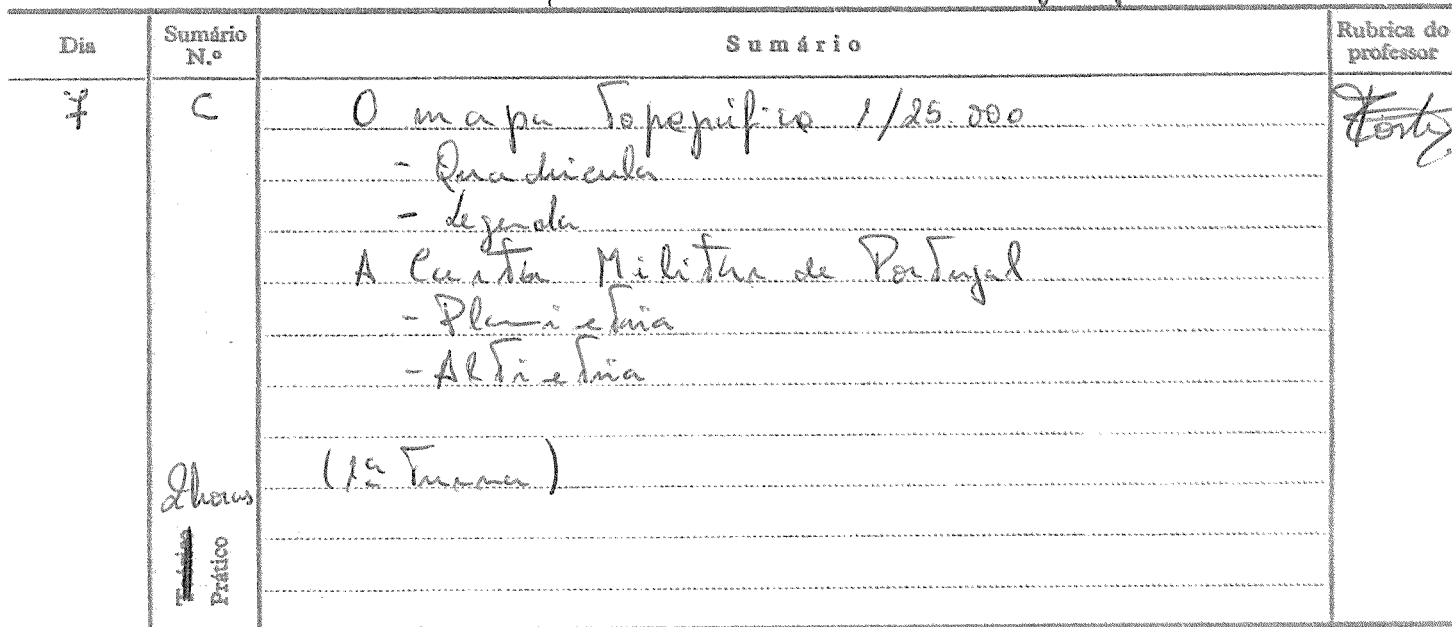 Dia Sumário N.º Sumário Rubrica do professor
7 C O mapa Topográfico 1/25.000
- Quadricula
- Legenda
A Carta Militar de Portugal
- Planietria
- Altietria
2 horas (1ª Turma)
Teórico
Prático